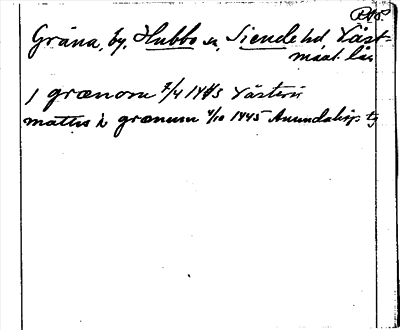 Gräna, by, Hubbo sn, Siende hd, Väst-
manl. län
I grænom 7/4 1445 Västerås
mattis i grænum 4/10 1445 Anundahögs tg